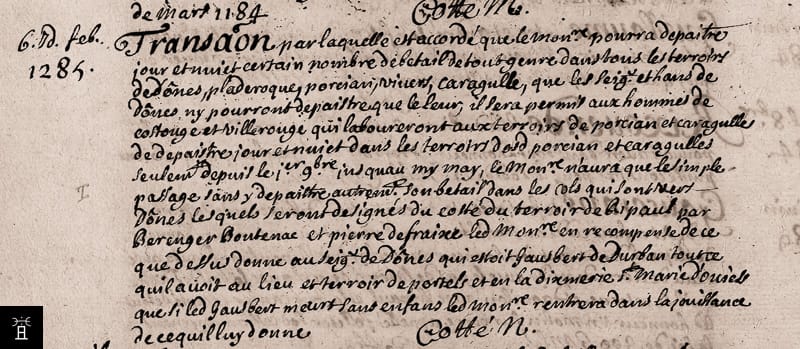 de mars 1184 Cotté M.
6. Id. feb. Transaõn par laquelle est accordé que le monre pourra depaitre
1285. jour et nuiet certain nombre de betail de tout genre dans tous les terroirs
de Dônes, pladeroque, porcian, vivers, caragulle, que les Seigr et hans de
Dônes ny pourront depaistre que le leur, il sera permis aux hommes de
costouge et villerouge qui laboureront aux terroirs de porcian et caragulles
de depaistre jour et nuiet dans les terroirs dosd porcian et caragulles
seulemt depuis le jer 9bre jusquau my may, le Monre naura que le simple
passage sans y depaitre autremt son betail dans les cols qui sont vers
Dônes lesquels seront designés du costé du terroir de Ripaul par
Berenger Boutenac et pierre defraixe led Monre en recompense de ce
que dessus donne au seigr de Dônes qui estoit Jausbert de Durban tout ce
quil avoit au lieu et terroir de portels et en la dixmerie Ste Marie Douiels
que si led Jausbert meurt sans enfans led monre rentrera dans la jouissance
de ce quil luy donne Cotté N.